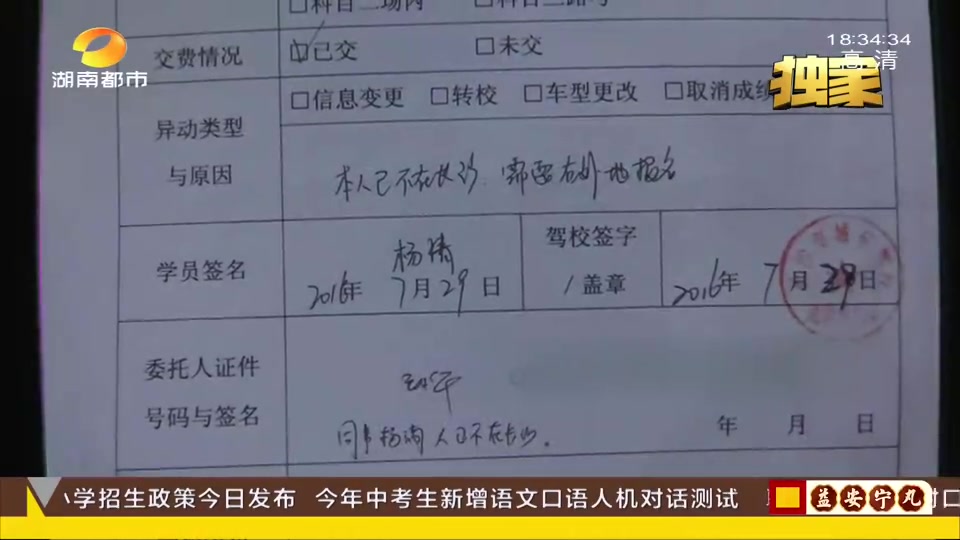 交费情况 已交 未交
18:34:34
高清
独家
湖南都市
异动类型
与原因
信息变更 转校 车型更改 取消成绩
本人已不在长沙,需要在外地报名
学员签名
杨倩
2016年 7月29日
驾校签字
/盖章
2016年 7月29日
委托人证件
号码与签名
同事杨倩人已不在长沙。
年 月 日
小学招生政策今日发布 今年中考生新增语文口语人机对话测试
益安宁丸